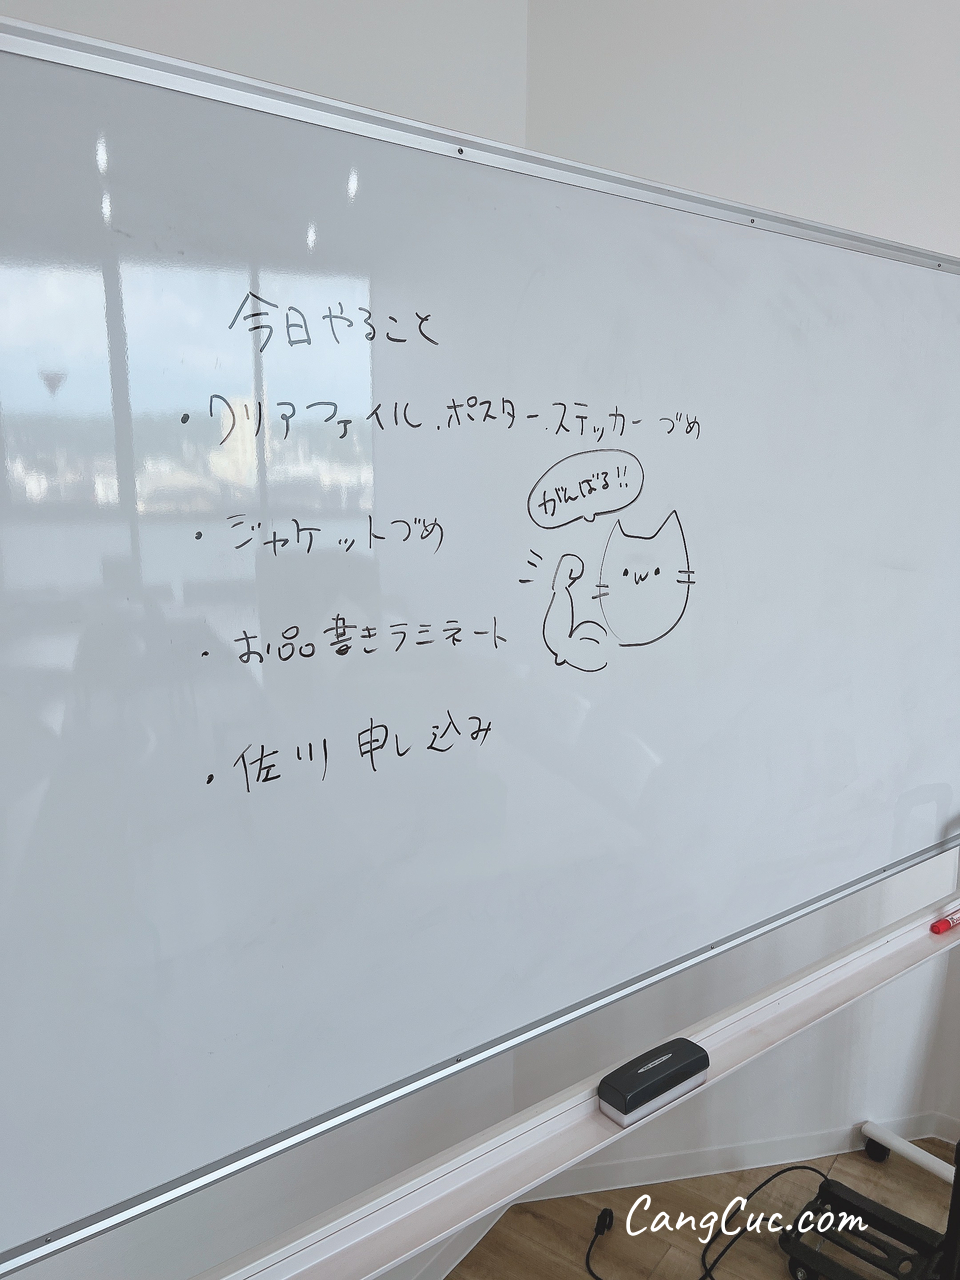 今日やること
・クリアファイル、ポスター、ステッカーづめ
がんばる!!
・ジャケットづめ
・w・
・お品書きラミネート
・佐川 申し込み
CangCuc.com